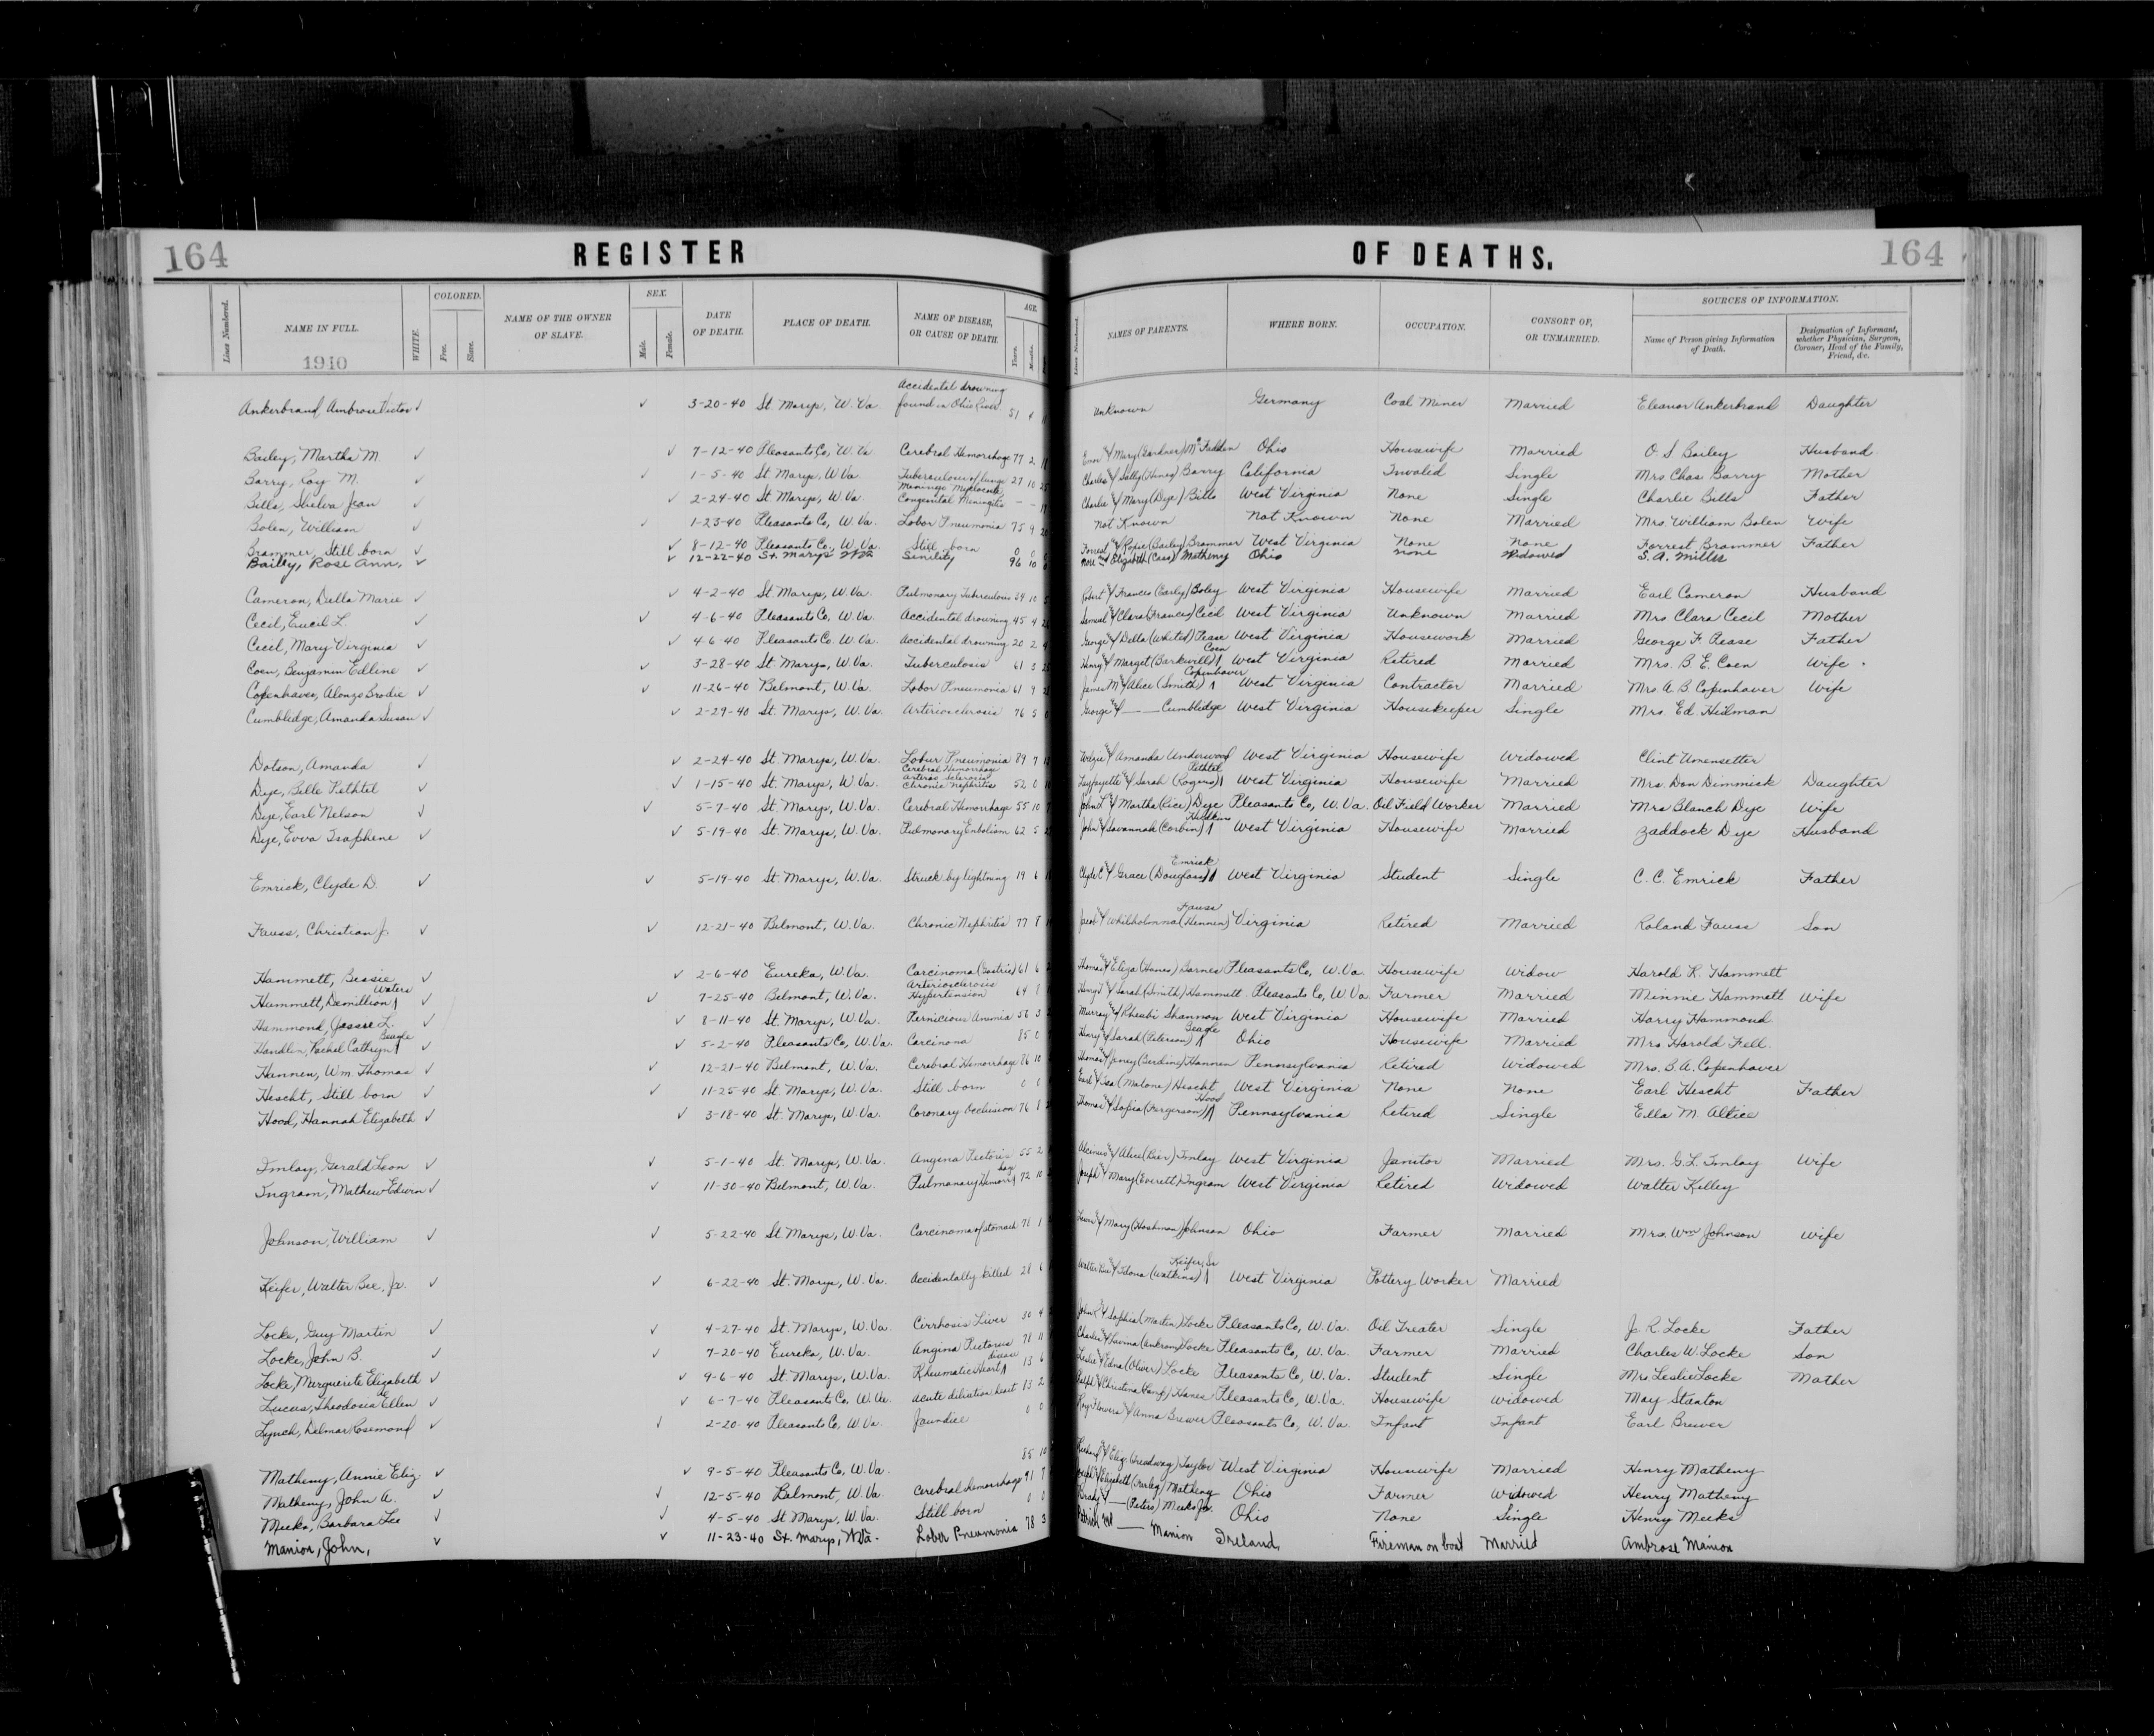 164 REGISTER OF DEATHS. 164
Lines Numbered. NAME IN FULL. 1940 WHITE. COLORED. Free. Slave. NAME OF THE OWNER OF SLAVE. SEX. Male. Female. DATE OF DEATH. PLACE OF DEATH. NAME OF DISEASE, OR CAUSE OF DEATH. AGE Years. Months. Lines Numbered. NAMES OF PARENTS. WHERE BORN. OCCUPATION. CONSORT OF, OR UNMARRIED. SOURCES OF INFORMATION. Name of Person giving Information of Death. Designation of Informant, whether Physician, Surgeon, Coroner, Head of the Family, Friend, &c.
Ankerbrand Ambrose Victor ✓ ✓ 3-20-40 St. Marys, W. Va. Accidental drowning found in Ohio River 51 4 11 Unknown Germany Coal Miner Married Eleanor Ankerbrand Daughter
Bailey, Martha M ✓ ✓ 7-12-40 Pleasants Co, W. Va. Cerebral Hemorrhage 77 2 & Mary (Gardner) McFadden Ohio Housewife Married O. S. Bailey Husband
Barry, Roy M. ✓ ✓ 1-5-40 St. Marys, W. Va. Tuberculosis of lungs 27 10 25 Charles & Sally (Hines) Barry California Invalid Single Mrs. Chas Barry Mother
Bills, Shelva Jean ✓ ✓ 2-24-40 St. Marys, W. Va. Congenital Meningitis - - Charlie & Mary (Dye) Bills West Virginia None Single Charlie Bills Father
Bolen, William ✓ ✓ 1-23-40 Pleasants Co, W. Va. Lobar Pneumonia 75 9 20 Not Known Not Known None Married Mrs. William Bolen Wife
Brammer, Still born ✓ ✓ 8-12-40 Pleasants Co., W. Va. Still born 0 0 Forrest & (Bailey) Brammer West Virginia None None Forrest Brammer Father
Bailey, Rose Ann. ✓ ✓ 12-22-40 St. Marys W.Va Senility 96 10 Elizabeth (Cass) Matheny Ohio none Widowed S. A. Miller
Cameron, Della Marie ✓ ✓ 4-2-40 St. Marys, W. Va. Pulmonary Tuberculous 39 10 5 Robert & Frances (Early) Boley West Virginia Housewife Married Earl Cameron Husband
Cecil, Eucil L. ✓ ✓ 4-6-40 Pleasants Co, W. Va. Accidental drowning 45 4 & Clara (Francis) Cecil West Virginia Unknown Married Mrs Clara Cecil Mother
Cecil, Mary Virginia ✓ ✓ 4-6-40 Pleasants Co. W. Va. Accidental drowning 20 2 George & Della (Whited) Pease West Virginia Housework Married George F. Pease Father
Coen, Benjamin Edline ✓ ✓ 3-28-40 St. Marys, W. Va. Tuberculosis 61 3 Henry & Marget (Barkwill) Coen West Virginia Retired Married Mrs. B. E. Coen Wife
Copenhaver, Alonzo Brodie ✓ ✓ 11-26-40 Belmont, W. Va. Lobar Pneumonia 61 9 James M & Alice (Smith) Copenhaver West Virginia Contractor Married Mrs A. B. Copenhaver Wife
Cumbledge, Amanda Susan ✓ ✓ 2-29-40 St. Marys, W. Va. Arteriosclerosis 76 5 George & — Cumbledge West Virginia Housekeeper Single Mrs. Ed. Hidman
Dotson, Amanda ✓ ✓ 2-24-40 St. Marys, W. Va. Lobar Pneumonia 89 7 & Amanda Underwood West Virginia Housewife Widowed Clint Umensetter
Dye, Belle Pethtel ✓ ✓ 1-15-40 St. Marys, W. Va. Cerebral Hemorrhage Arterio sclerosis Chronic Nephritis 52 0 Layfayette & Sarah (Rogers) Pethtel West Virginia Housewife Married Mrs. Don Dimmick Daughter
Dye, Earl Nelson ✓ ✓ 5-7-40 St. Marys, W. Va. Cerebral Hemorrhage 55 10 John L & Martha (Rice) Dye Pleasants Co, W. Va. Oil Field Worker Married Mrs Blanch Dye Wife
Dye, Evva Isaphene ✓ ✓ 5-19-40 St. Marys, W. Va. Pulmonary Embolism 62 5 John & Savannah (Corbin) West Virginia Housewife Married Zaddock Dye Husband
Emrick, Clyde D. ✓ ✓ 5-19-40 St. Marys, W. Va. Struck by lightning 19 6 Clyde C & Grace (Douglass) Emrick West Virginia Student Single C. C. Emrick Father
Fauss, Christian J. ✓ ✓ 12-21-40 Belmont, W. Va. Chronic Nephritis 77 8 Jacob & Whilholmna (Hennen) Fauss Virginia Retired Married Roland Fauss Son
Hammett, Bessie ✓ ✓ 2-6-40 Eureka, W. Va. Carcinoma (Gastric) 61 6 Thomas & Eliza (Hanes) Barnes Pleasants Co, W. Va. Housewife Widow Harold R. Hammett
Hammett, Demillion Waters ✓ ✓ 7-25-40 Belmont, W. Va. Arteriosclerosis Hypertension 64 8 Henry & Sarah (Smith) Hammett Pleasants Co, W. Va Farmer Married Minnie Hammett Wife
Hammond, Jessie L. ✓ ✓ 8-11-40 St. Marys, W. Va. Pernicious Anemia 56 3 Murray & Rheubi Shannon West Virginia Housewife Married Harry Hammond
Handlin, Rachel Cathryn Beagle ✓ ✓ 5-2-40 Pleasants Co, W. Va. Carcinoma 85 0 Henry & Sarah (Peterson) Beagle Ohio Housewife Married Mrs. Harold Fell.
Hannen, Wm. Thomas ✓ ✓ 12-21-40 Belmont, W. Va. Cerebral Hemorrhage 86 10 Thomas & Jancy (Berdine) Hannen Pennsylvania Retired Widowed Mrs. B. A. Copenhaver
Hescht, Still born ✓ ✓ 11-25-40 St. Marys, W. Va. Still born 0 0 Earl & Isa (Malone) Hescht West Virginia None None Earl Hescht Father
Hood, Hannah Elizabeth ✓ ✓ 3-18-40 St. Marys, W. Va. Coronary Occlusion 76 8 Thomas & Sophia (Fergerson) Hood Pennsylvania Retired Single Ella M. Altice
Imlay, Gerald Leon ✓ ✓ 5-1-40 St. Marys, W. Va. Angina Pectoris 55 2 & Alice (Bier) Imlay West Virginia Janitor Married Mrs. G. L. Imlay Wife
Ingram, Mathew Edwin ✓ ✓ 11-30-40 Belmont, W. Va. Pulmonary Hemorrhage 72 10 Joseph & Mary (Everett) Ingram West Virginia Retired Widowed Walter Kelley
Johnson, William ✓ ✓ 5-22-40 St. Marys, W. Va. Carcinoma of stomach 78 1 Lewis & Mary (Hashman) Johnson Ohio Farmer Married Mrs. Wm Johnson Wife
Keifer, Walter Bee, Jr. ✓ ✓ 6-22-40 St. Marys, W. Va. Accidentally killed 28 6 Walter Bee & (Watkins) Keifer, Sr West Virginia Pottery Worker Married
Locke, Guy Martin ✓ ✓ 4-27-40 St. Marys, W. Va. Cirrhosis Liver 30 4 John R & Sophia (Martin) Locke Pleasants Co, W. Va. Oil Treater Single J. R. Locke Father
Locke, John B. ✓ ✓ 7-20-40 Eureka, W. Va. Angina Pectoris 78 11 Charles & (Ankrom) Locke Pleasants Co, W. Va. Farmer Married Charles W. Locke Son
Locke, Marguerite Elizabeth ✓ ✓ 9-6-40 St. Marys, W. Va. Rheumatic Heart disease 13 6 Leslie & Edna (Oliver) Locke Pleasants Co, W. Va. Student Single Mrs Leslie Locke Mother
Lucas, Theodosia Ellen ✓ ✓ 6-7-40 Pleasants Co, W. Va. Acute dilation heart 83 2 Ralph & Christina (Kemp) Hanes Pleasants Co, W. Va. Housewife Widowed May Stanton
Lynch, Delmar Rosemond ✓ ✓ 2-20-40 Pleasants Co, W. Va. Jaundice 0 0 Ray Flowers & Anna Brewer Pleasants Co, W. Va. Infant Infant Earl Brewer
Matheny, Annie Eliz. ✓ ✓ 9-5-40 Pleasants Co, W. Va. 85 10 Richard & Eliz. (Treadway) Taylor West Virginia Housewife Married Henry Matheny
Matheny, John A. ✓ ✓ 12-5-40 Belmont, W. Va. Cerebral hemorrhage 91 7 Joseph & Elizabeth (Farley) Matheny Ohio Farmer Widowed Henry Matheny
Meeks, Barbara Lee ✓ ✓ 4-5-40 St Marys, W. Va. Still born 0 0 Brady & — (Peters) Meeks Jr. Ohio None Single Henry Meeks
Manion, John, ✓ ✓ 11-23-40 St. Marys, W.Va. Lober Pneumonia 78 3 Patrick and — Manion Ireland, Fireman on boat Married Ambrose Manion